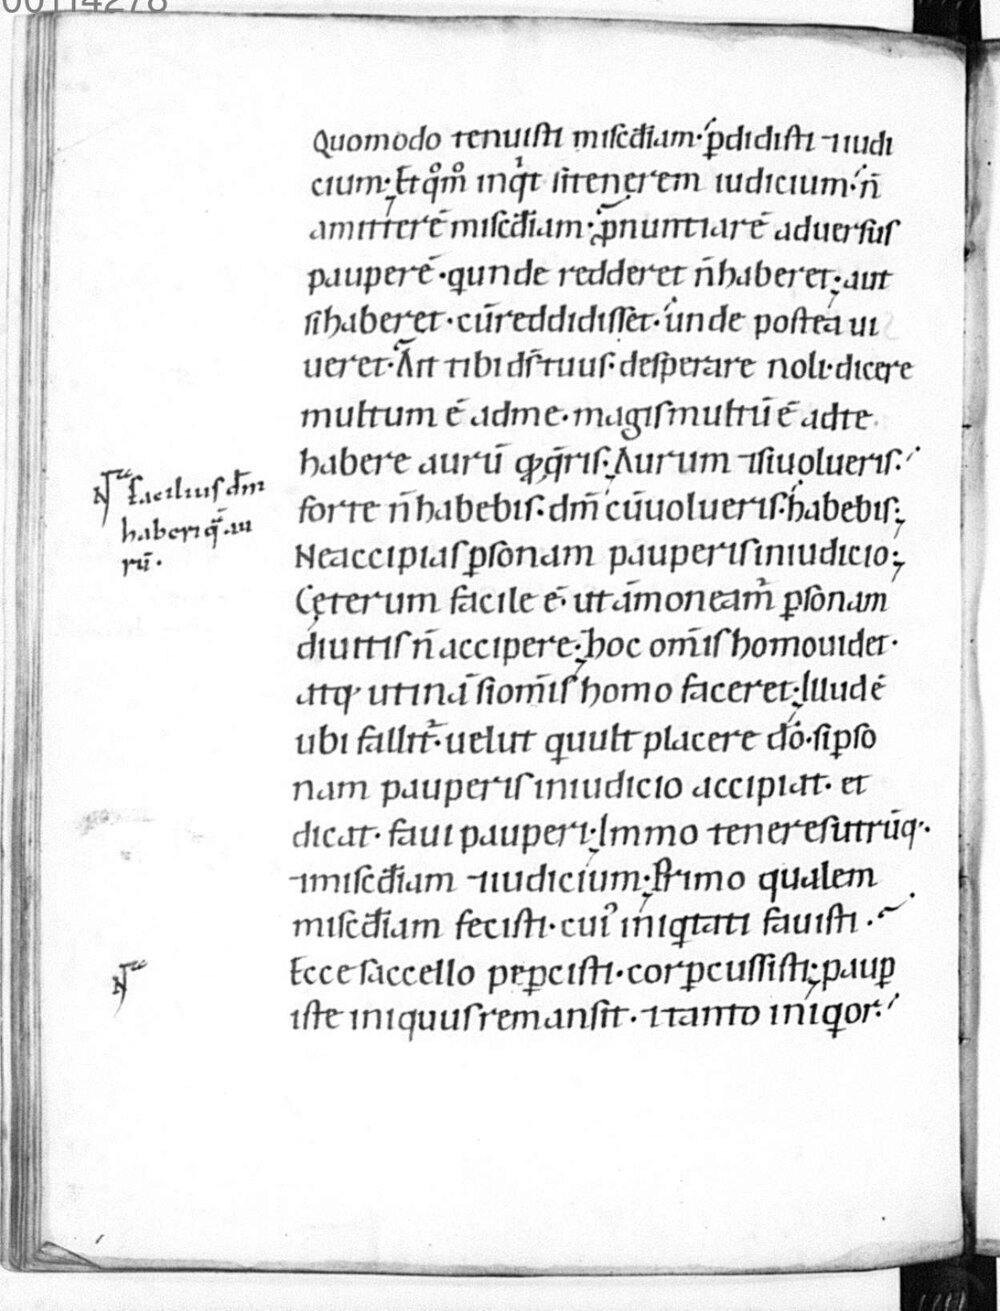 00114278
Quomodo tenuisti misc̄diam· ꝑdidisti ⁊iudi
cium; Et qͦmͦ inqͥt si tenerem iudicium· n̄
amitterē misc̄diam· ꝓnuntiarē aduersus
pauperē· qͥ unde redderet n̄ haberet; aut
si haberet· cū reddidisset· unde postea ui
ueret· Ait tibi ds̄ tuus· desperare noli· dicere
multum ē ad me· magis multū ē ad te
habere aurū qđ q̄ris; Aurum ⁊si uolueris·
forte n̄ habebis· dm̄ cū uolueris· habebis;
Ne accipias ꝑsonam pauperis in iudicio;
Cęterum facile ē· ut āmoneam̄ ꝑsonam
diuitis n̄ accipere; hoc om̄is homo uidet·
atq· utinā si om̄is homo faceret; Illud ē
ubi fallit̄· uelut qͥ uult placere dō· si ꝑso
nam pauperis in iudicio accipiat· et
dicat· faui pauperi; Immo teneres utrūq·
⁊misc̄diam ⁊iudicium; Primo qualem
misc̄diam fecisti· cui' iniqͥtati fauisti·
Ecce saccello peꝑcisti· cor ꝑcussisti; pauꝑ
iste iniquus remansit· ⁊tanto iniqͥor·
N̄ facilius dm̄
haberi q̄ au
rū·
N̄